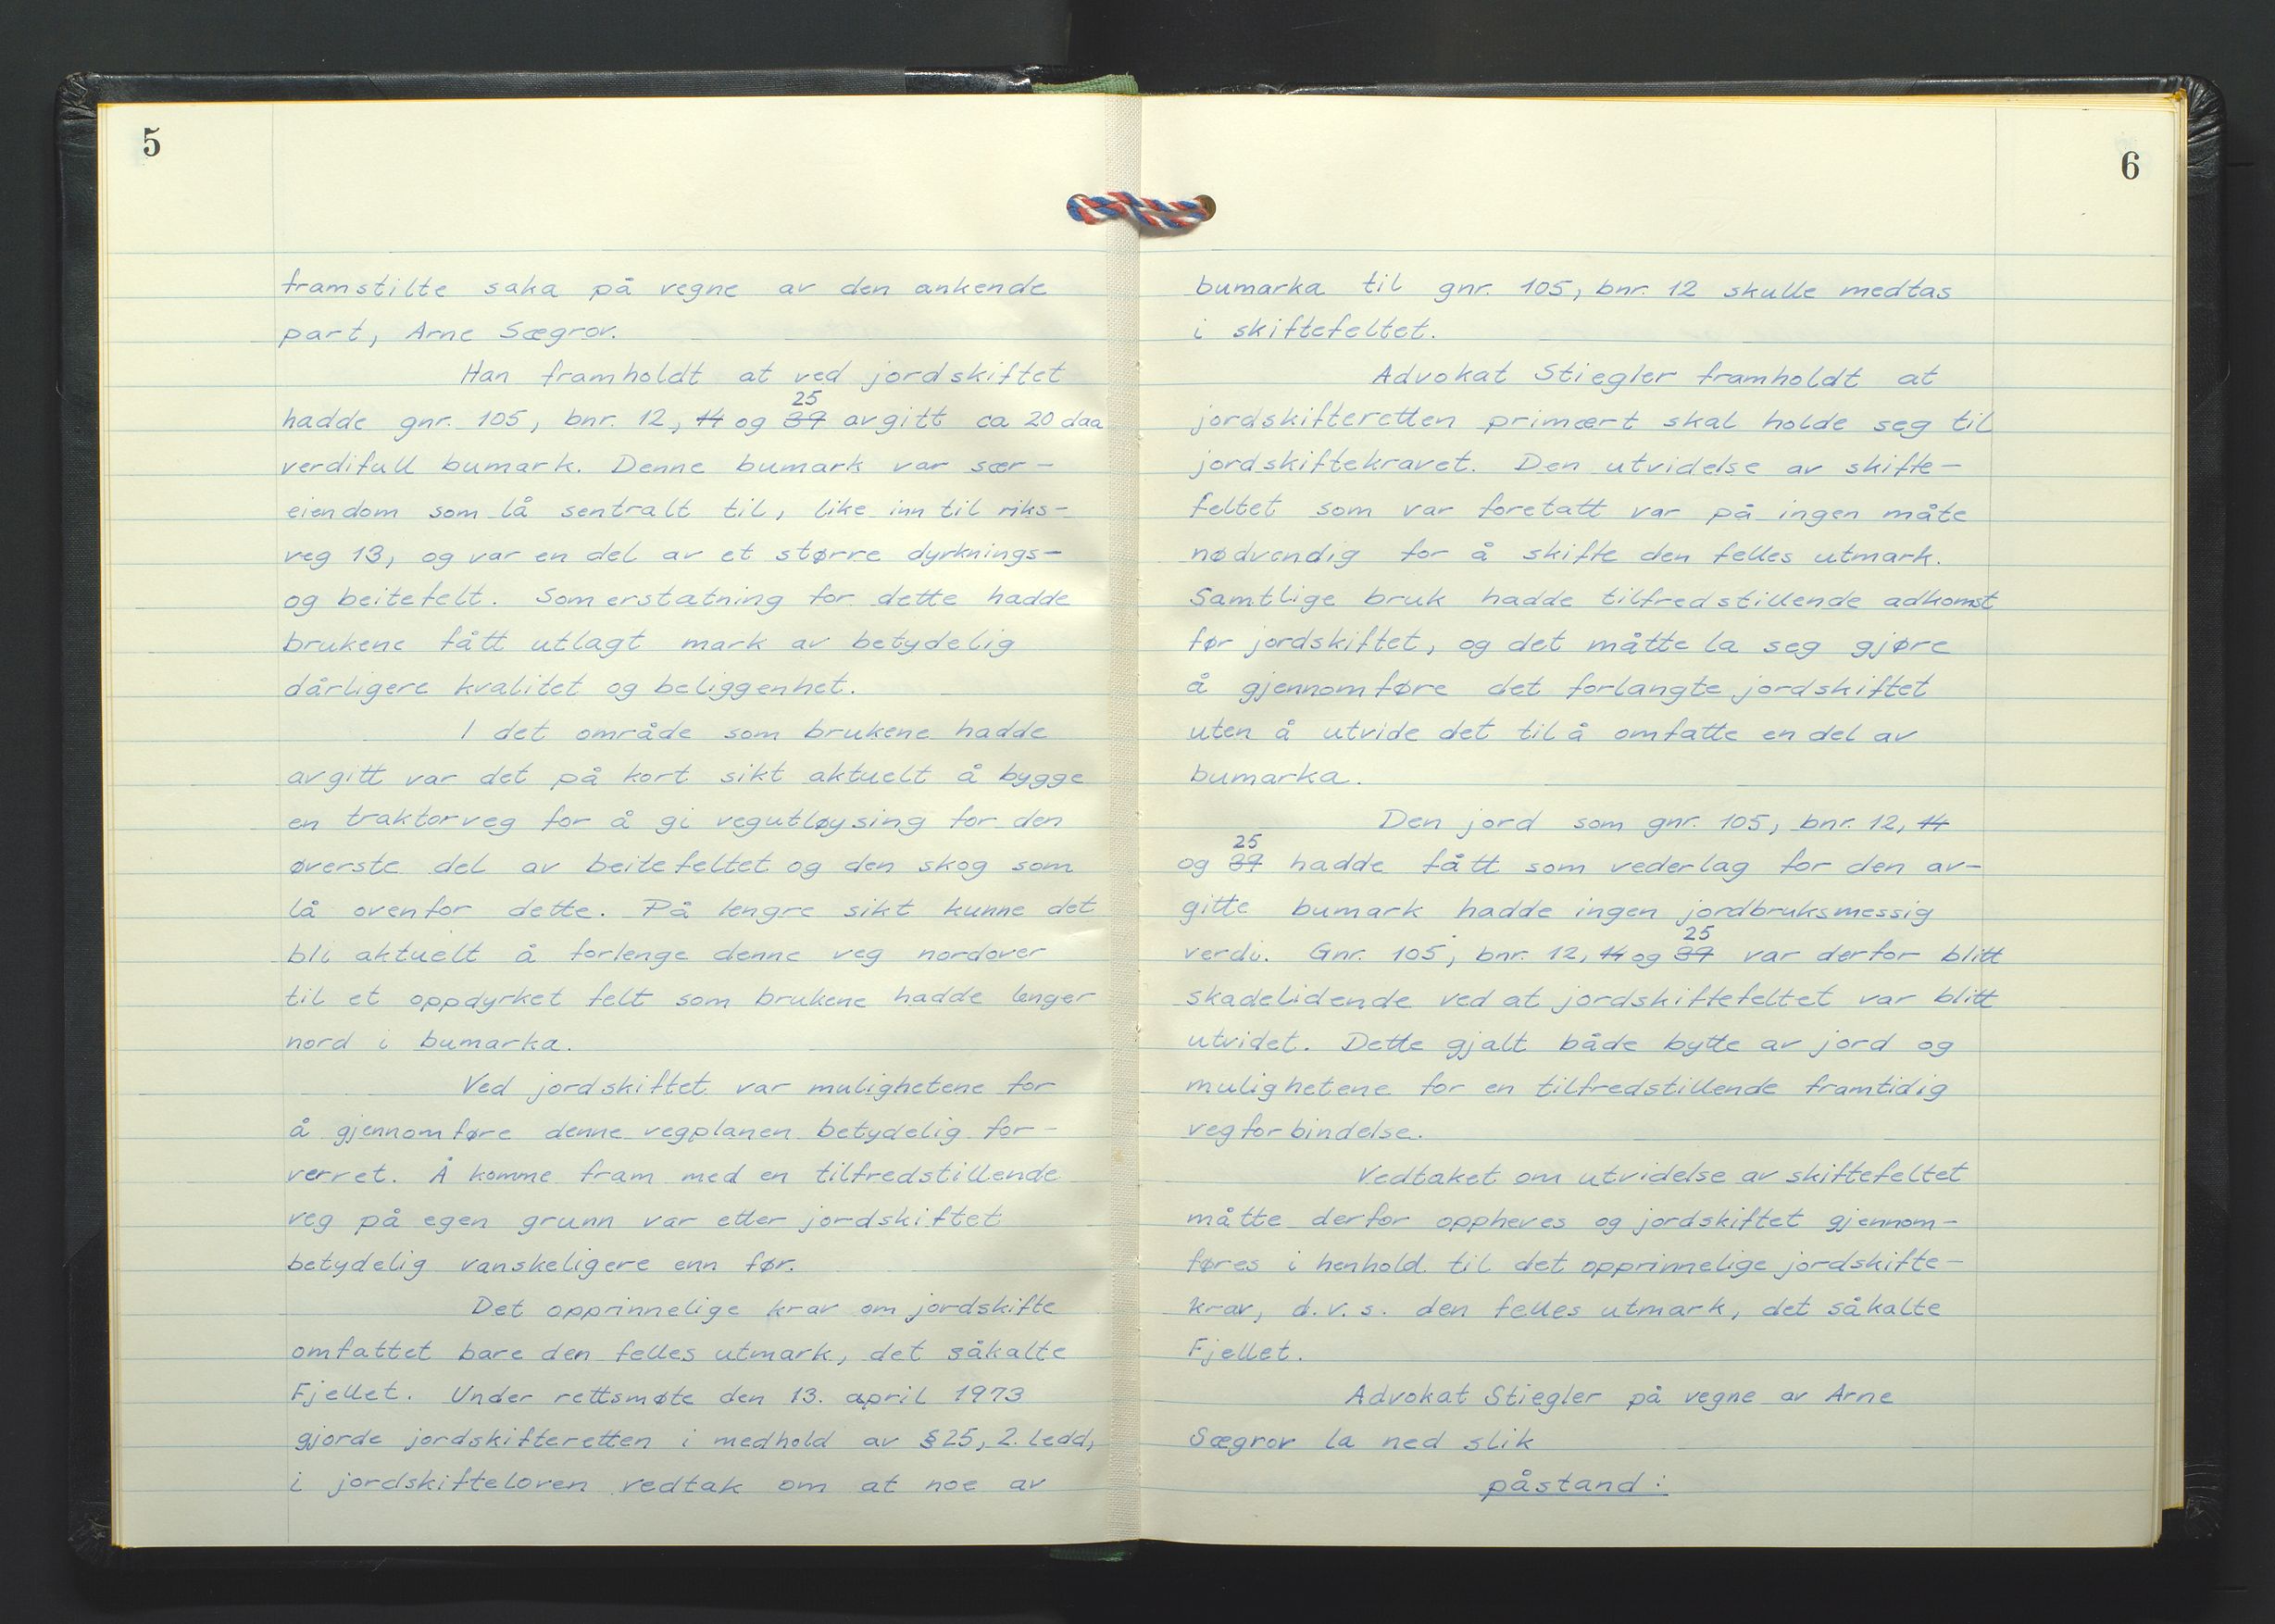 5
framstilte saka på vegne av den ankende
part, Arne Sægrov.
Han framholdt at ved jordskiftet
25
hadde gnr. 105, bnr. 12, 14 og 37 avgitt ca 20 daa
verdifull bumark. Denne bumark var sær-
eiendom som lå sentralt til, like inn til riks-
veg 13, og var en del av et større dyrknings-
og beitefelt. Som erstatning for dette hadde
brukene fått utlagt mark av betydelig
dårligere kvalitet og beliggenhet.
I det område som brukene hadde
avgitt var det på kort sikt aktuelt å bygge
en traktorveg for å gi vegutløysing for den
øverste del av beitefeltet og den skog som
lå ovenfor dette. På lengre sikt kunne det
bli aktuelt å forlenge denne veg nordover
til et oppdyrket felt som brukene hadde lenger
nord i bumarka.
Ved jordskiftet var mulighetene for
å gjennomføre denne vegplanen betydelig for-
verret. Å komme fram med en tilfredstillende
veg på egen grunn var etter jordskiftet
betydelig vanskeligere enn før.
Det opprinnelige krav om jordskifte
omfattet bare den felles utmark, det såkalte
Fjellet. Under rettsmøte den 13. april 1973
gjorde jordskifteretten i medhold av § 25, 2. ledd,
i jordskifteloven vedtak om at noe av
6
bumarka til gnr. 105, bnr. 12 skulle medtas
i skiftefeltet.
Advokat Stiegler framholdt at
jordskifteretten primært skal holde seg til
jordskiftekravet. Den utvidelse av skifte-
feltet som var foretatt var på ingen måte
nødvendig for å skifte den felles utmark.
Samtlige bruk hadde tilfredstillende adkomst
før jordskiftet, og det måtte la seg gjøre
å gjennomføre det forlangte jordskiftet
uten å utvide det til å omfatte en del av
bumarka.
Den jord som gnr. 105, bnr. 12, 14
25
og 37 hadde fått som vederlag for den av-
gitte bumark hadde ingen jordbruksmessig
25
verdi. Gnr. 105, bnr. 12, 14 og 37 var derfor blitt
skadelidende ved at jordskiftefeltet var blitt
utvidet. Dette gjalt både bytte av jord og
mulighetene for en tilfredstillende framtidig
vegforbindelse.
Vedtaket om utvidelse av skiftefeltet
måtte derfor oppheves og jordskiftet gjennom-
føres i henhold til det opprinnelige jordskifte-
krav, d.v.s. den felles utmark, det såkalte
Fjellet.
Advokat Stiegler på vegne av Arne
Sægrov la ned slik
påstand: